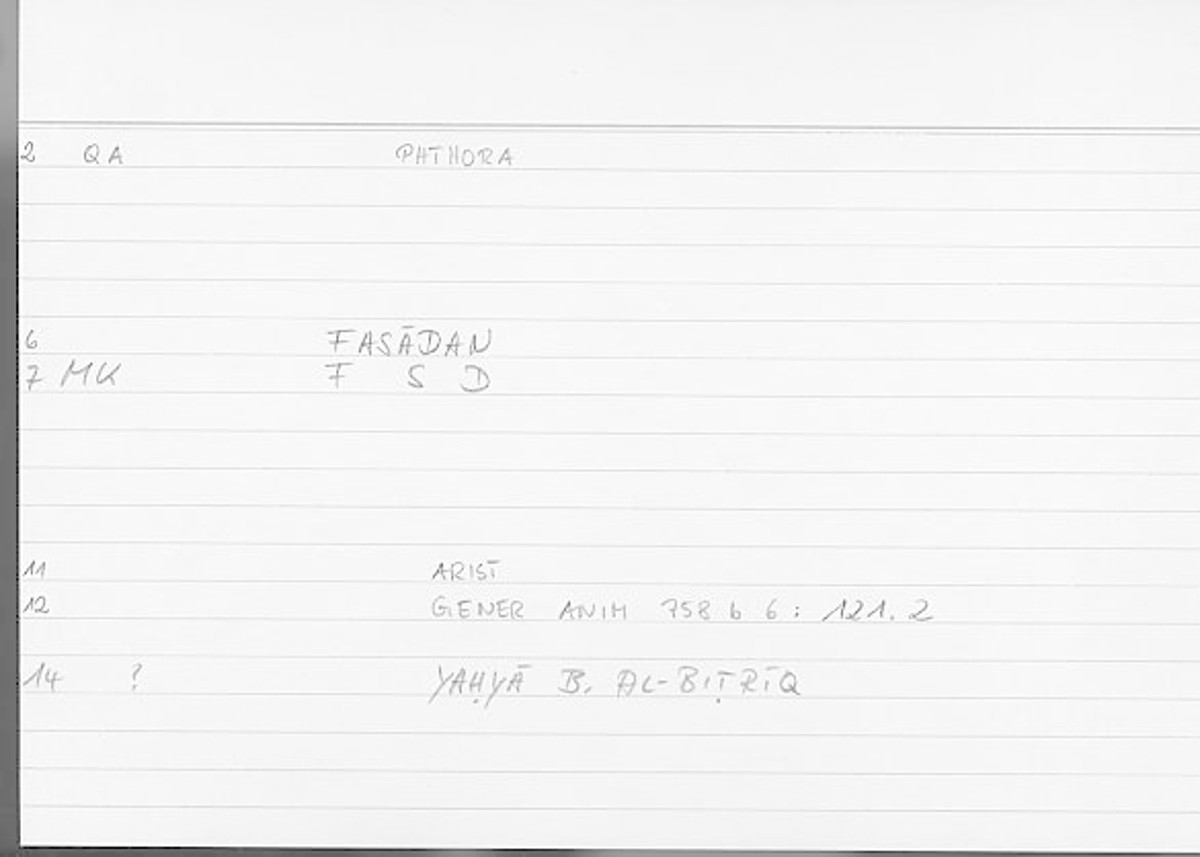 2 QA PHTHORA
6 FASĀDAN
7 MK F S D
11 ARIST
12 GENER ANIM 758 b 6 : 121.2
14 ? YAḤYĀ B. AL-BIṬRĪQ